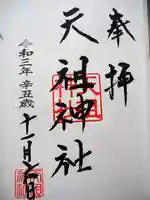 奉拝
天祖神社
令和三年 辛丑歳
十一月